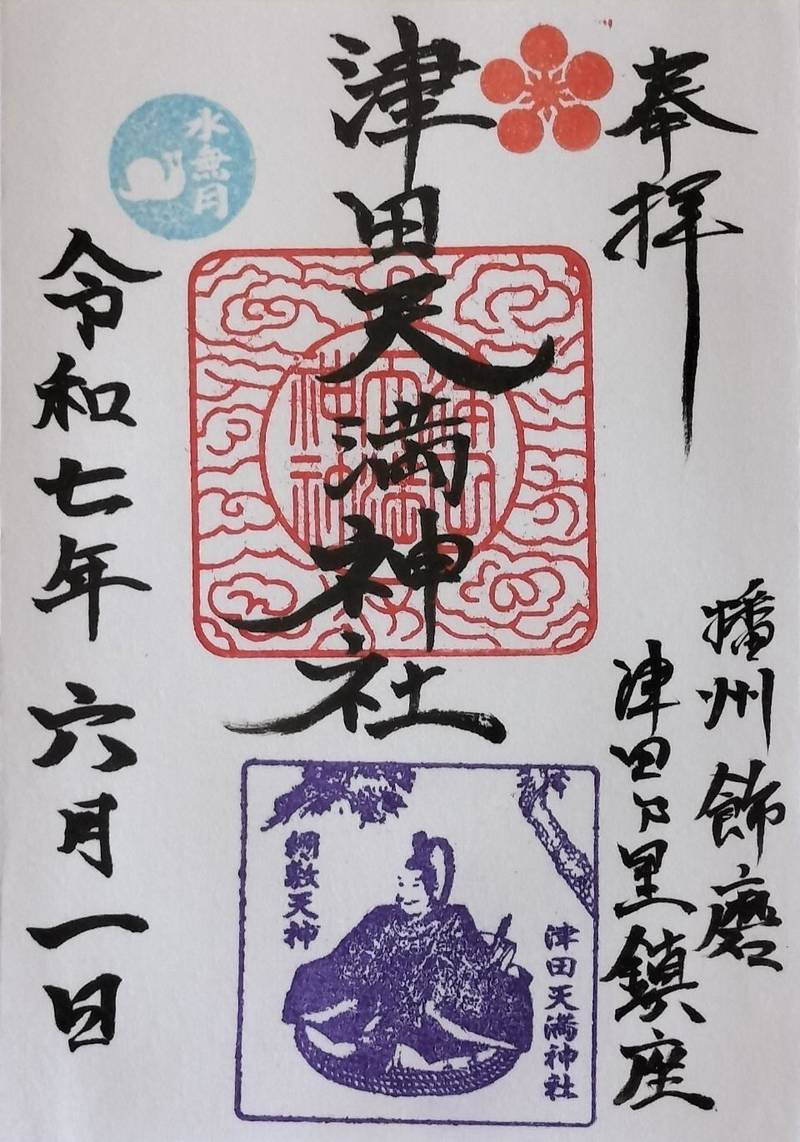 奉拝
播州飾磨
津田乃里鎮座
津田天満神社
津田天満神社
綱敷天神
水無月
令和七年 六月一日